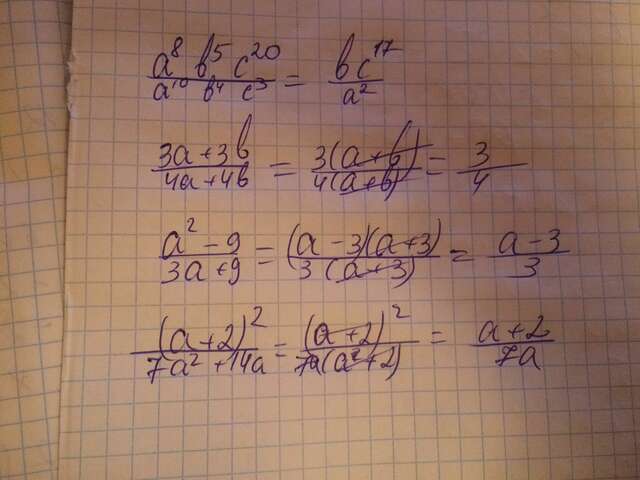 a⁸ b⁵ c²⁰ / a¹⁰ b⁴ c³ = bc¹⁷ / a²
3a+3b / 4a+4b = 3(a+b) / 4(a+b) = 3 / 4
a²-9 / 3a+9 = (a-3)(a+3) / 3(a+3) = a-3 / 3
(a+2)² / 7a²+14a = (a+2)² / 7a(a²+2) = a+2 / 7a